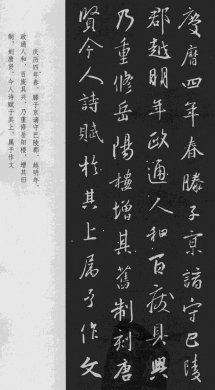 慶曆四年春滕子京謫守巴陵
郡越明年政通人和百廢具興
乃重修岳陽樓增其舊制刻唐
賢今人詩賦於其上屬予作文
庆历四年春，滕子京谪守巴陵郡。越明年，
政通人和，百废具兴，乃重修岳阳楼，增其旧
制，刻唐贤、今人诗赋于其上，属予作文